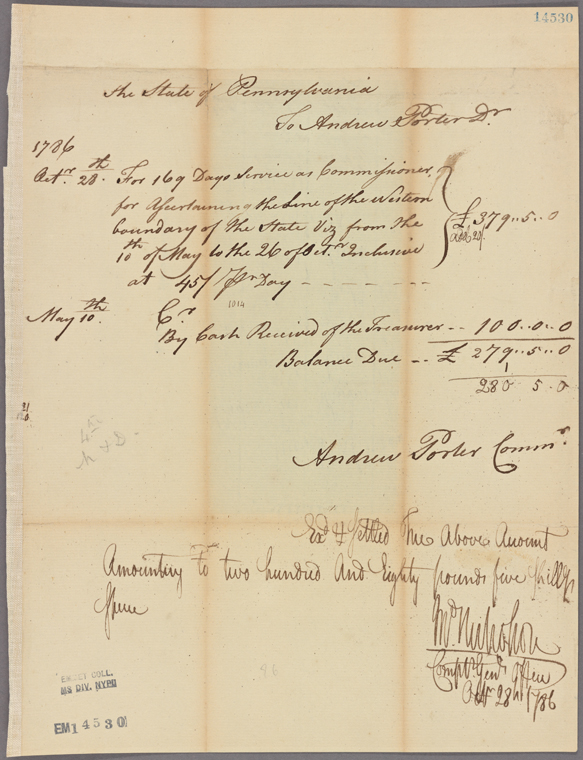 14530
the State of Pennsylvania
To Andrew Porter Dr
1786
Octr. 28th. For 169 Days Service as Commissioner
for Ascertaining the Line of the Western
boundary of the State Viz from the
10th of May to the 26 of Octr. Inclusive
at 45/ Pr Day - - - - - - - £ 379..5..0
add 20/.
1014
May 10th. Cr
By Cash Received of the Treasurer - - 100..0..0
Balance Due - - £ 279..5..0
1
280 5 . 0
Andrew Porter Commr.
Exd & Settled The Above Amount
Amounting to two hundred And Eighty pounds five Shillgs
Specie
Jno. Nicholson
Compt. Genls Office
Octr 28th 1786
86
EMMET COLL.
MS DIV. NYPL
EM14530